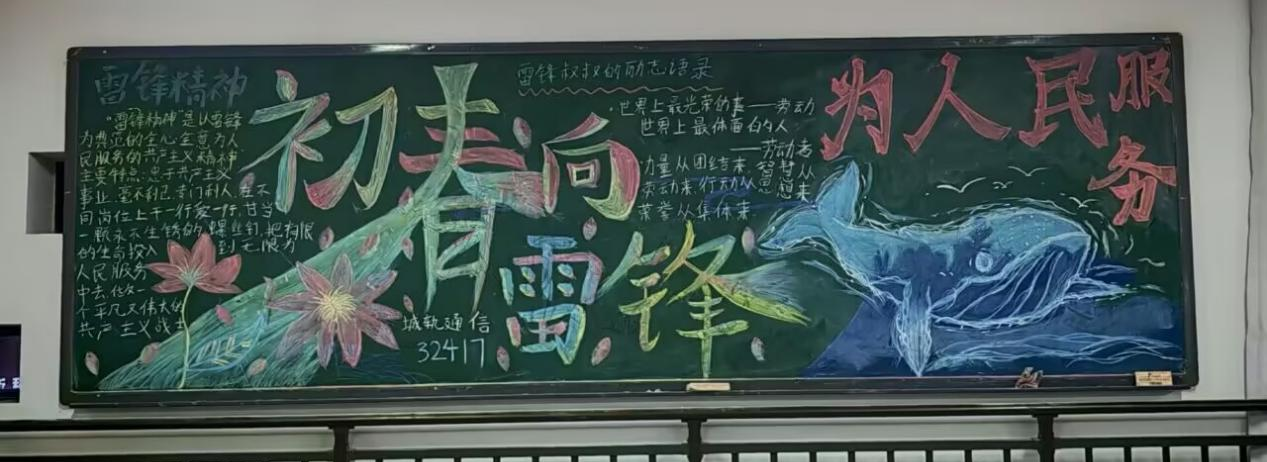 雷锋精神
"雷锋精神"是以雷锋
为典范的全心全意为人
民服务的共产主义精神
主要特点忠于共产主义
事业、毫不利己、专门利人、在不
同岗位上干一行爱一行、甘当
一颗永不生锈的螺丝钉、把有限
的生命投入到无限为
人民服务
中去、他是一
个平凡又伟大的
共产主义战士
初春向
雷锋
城轨通信
32417
雷锋叔叔的励志语录
·世界上最光荣的事——劳动
世界上最体面的人
——劳动者
力量从团结来 智慧从
劳动来,行动从 思想来
荣誉从集体来
为人民服
务